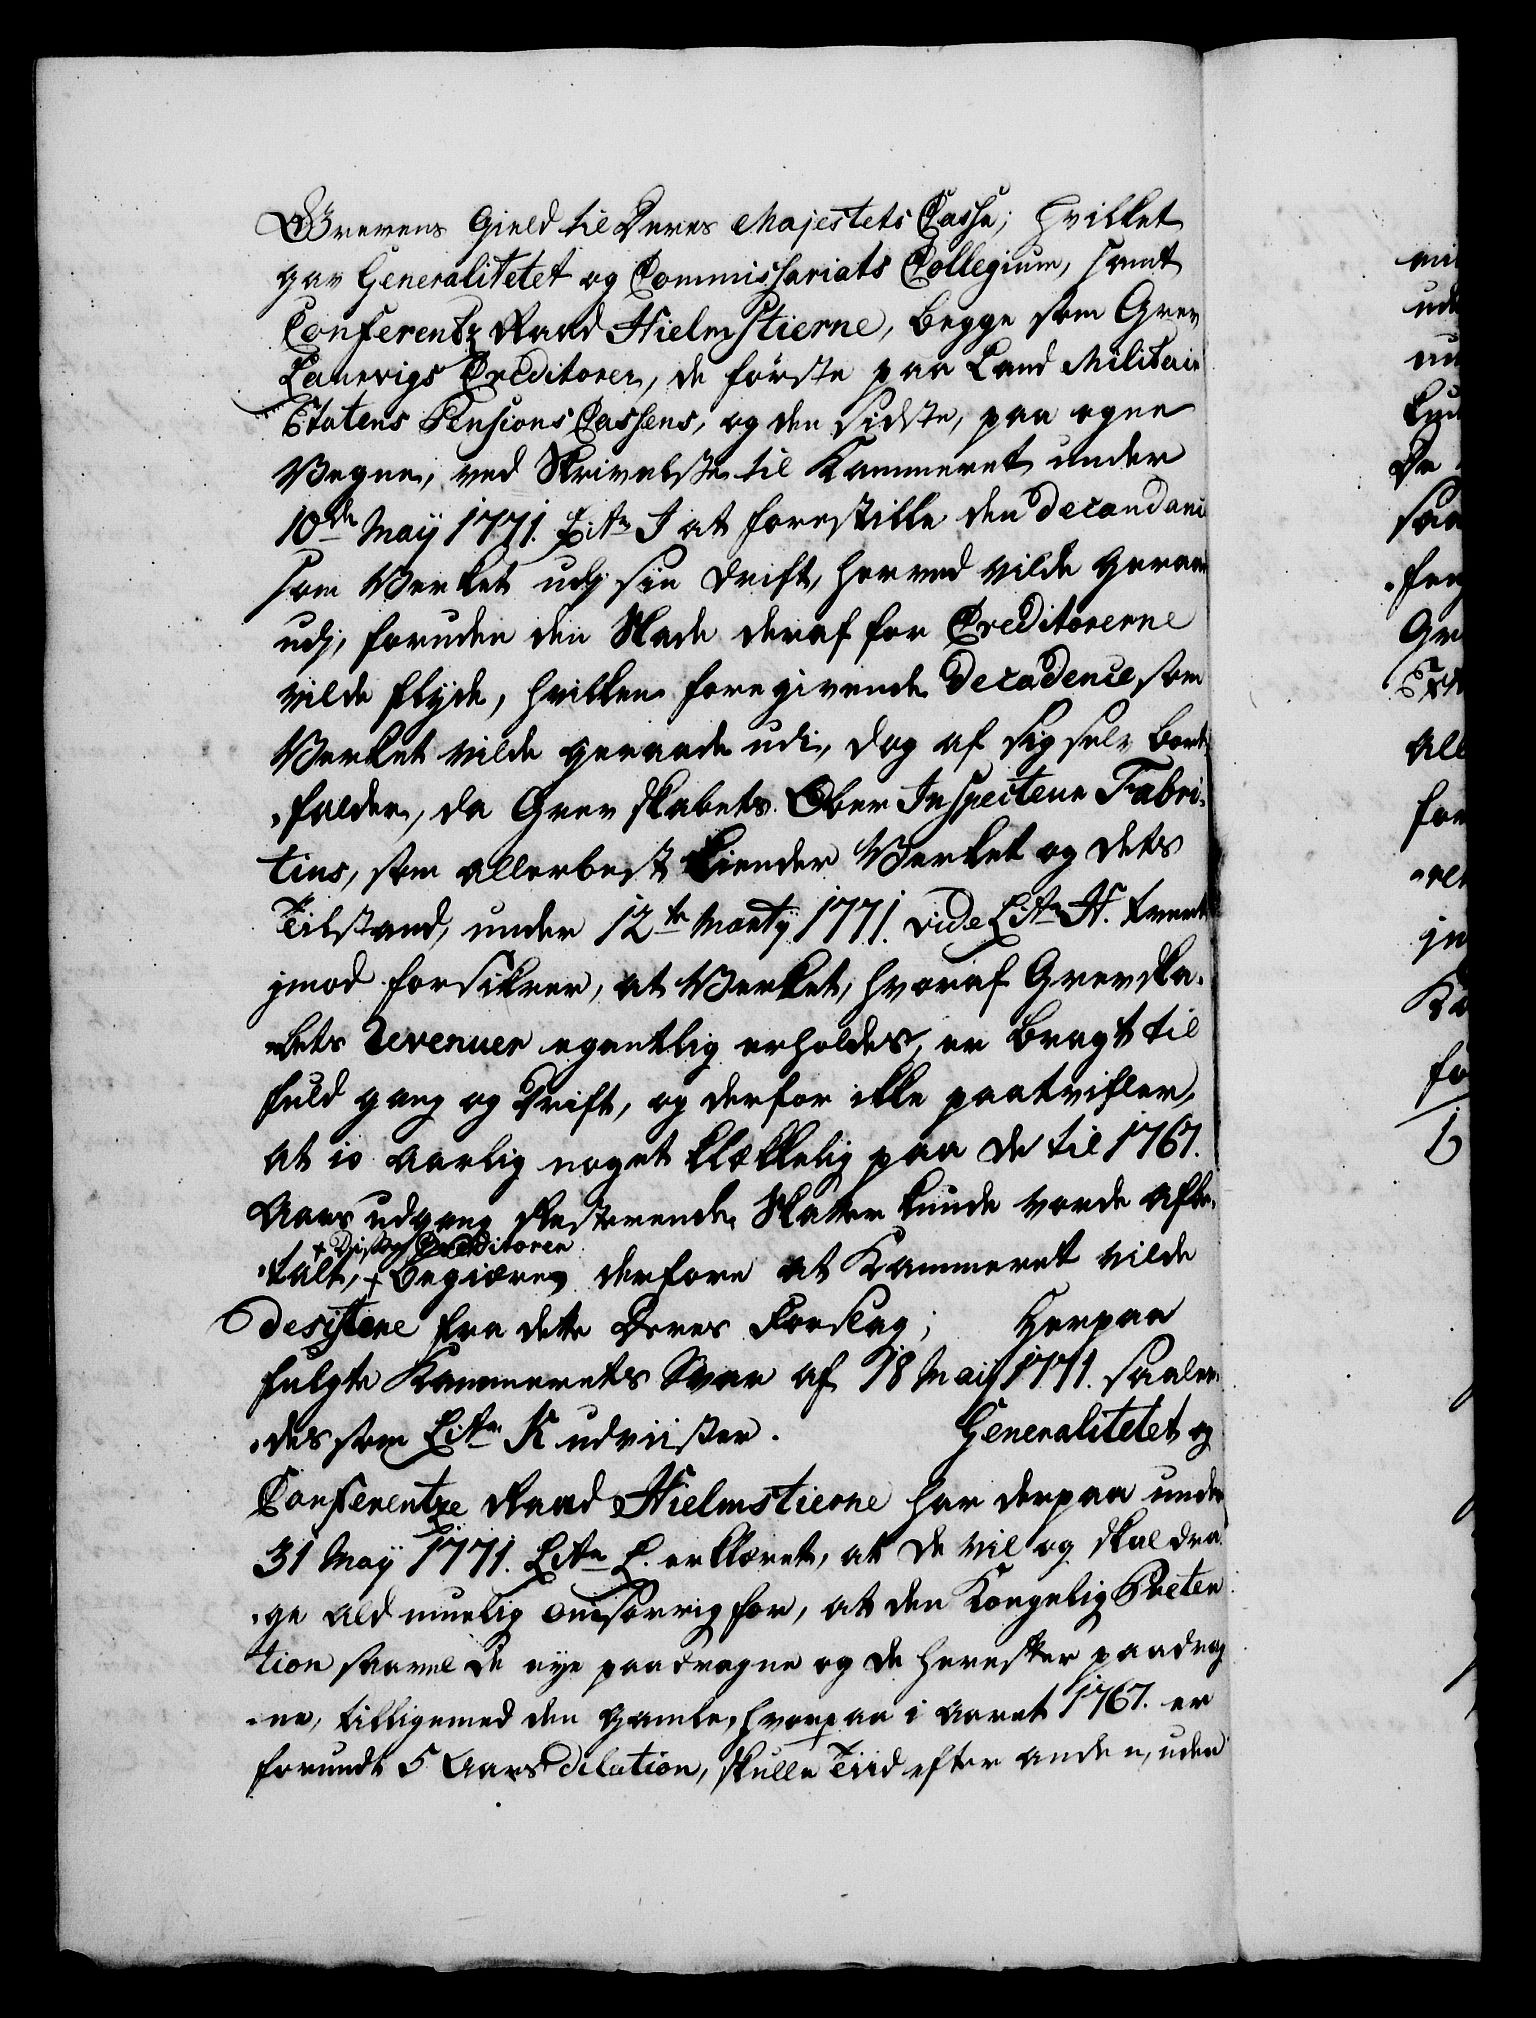 Grevens Gield til Deres Majestets Casse; hvilket
gav Generalitetet og Commissariats Collegium, samt
Conferentz Raad Hielmstierne, begge som Grev
Laurvigs Creditorer, de første paa Land Militair
Etatens Pensions Cassens, og den sidste, paa egne
Vegne, ved Skrivelse til Kammeret under
10de Maÿ 1771. Litr J at forestille den decandance
som Verket udj sin Drift, herved vilde geraade
udj, foruden den Skade deraf for Creditorerne
vilde flyde, hvilken foregivende Decadence, som
Verket vilde geraade udi, dog af sig selv bort
falder, da Grevskabets Ober Inspecteur Fabri-
tius, som allerbest kiender Verket og dets
Tilstand, under 12te Martÿ 1771. vide Litr H. tvert
jmod forsikrer, at Verket, hvoraf Grevska-
bets Revenuer egentlig erholdes, er bragt til
fuld gang og Drift, og derfor ikke paatvifler,
at io aarlig noget klækkelig paa de til 1767.
Aars udgang resterende Skatter kunde vorde afbe-
+ Disse Creditorer
talt, + begiærer derfore at Kammeret vilde
desistere fra dette Deres Forslag; Herpaa
fulgte Kammerets Svar af 18 Maij 1771. saale-
des som Litr K udviiser. Generalitetet og
Conferentze Raad Hielmstierne har derpaa under
31 Maÿ 1771. Litr L. erklæret, at de vil og skal dra
ge ald muelig omsorrig for, at den Kongelig Preten
tion saavel de nye paadragne og de herefter paadrag
ne, tilligemed den gamle, hvorpaa i aaret 1767. er
forundt 5 Aars Dilation, skulle Tiid efter anden, uden